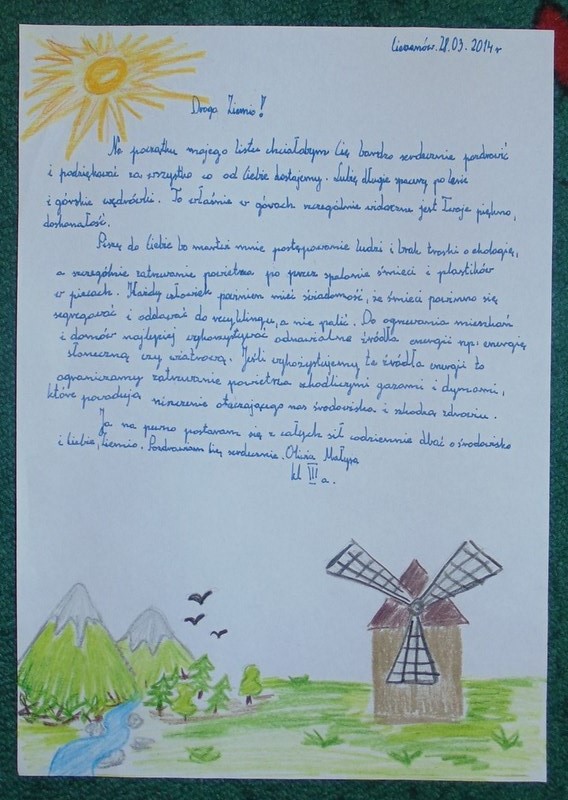 Cieszanów. 28.03.2014 r
Droga Ziemio!
Na początku mojego listu chciałabym Cię bardzo serdecznie pozdrowić
i podziękować za wszystko co od Ciebie dostajemy. Lubię długie spacery po lesie
i górskie wędrówki. To właśnie w górach szczególnie widoczne jest Twoje piękno,
doskonałość.
Piszę do Ciebie bo martwi mnie postępowanie ludzi i brak troski o ekologię,
a szczególnie zatruwanie powietrza po przez spalanie śmieci i plastików
w piecach. Każdy człowiek powinien mieć świadomość, że śmieci powinno się
segregować i oddawać do recyklingu, a nie palić. Do ogrzewania mieszkań
i domów najlepiej wykorzystywać odnawialne źródła energii np: energię
słoneczną czy wiatrową. Jeśli wykożystujemy te źródła energii to
ograniczamy zatruwanie powietrza szkodliczymi gazami i dymami,
które powodują niszczenie otaczającego nas środowiska i szkodzą zdrowiu.
Ja na pewno postaram się z całych sił codziennie dbać o środowisko
i Ciebie, Ziemio. Pozdrawiam Cię serdecznie. Oliwia Małysa
kl III a.